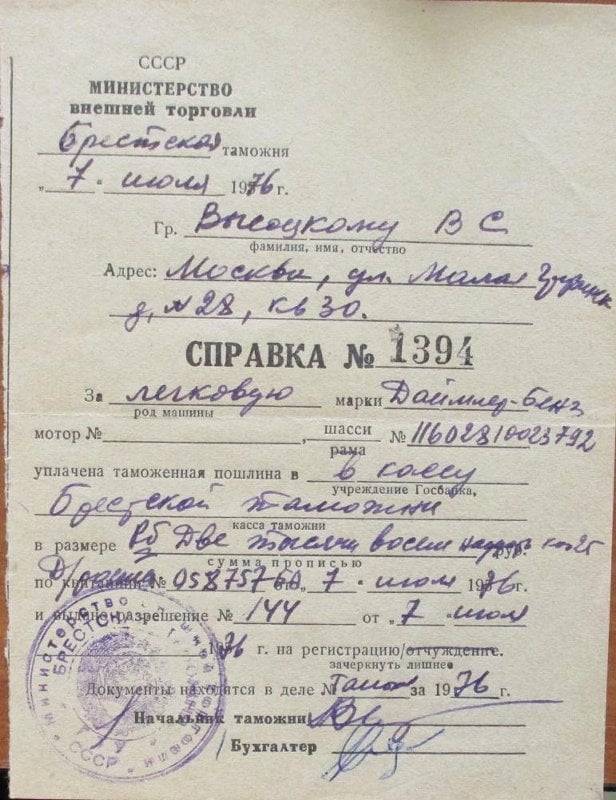 СССР
МИНИСТЕРСТВО
внешней торговли
Брестская таможня
„ 7 " июля 1976 г.
Гр. Высоцкому В С
фамилия, имя, отчество
Адрес: Москва, ул. Малая Грузинск
д. №28, кв 30.
СПРАВКА № 1394
За легковую марки Даймлер-Бенз
род машины
мотор № , шасси № 11602810023792
рама
уплачена таможенная пошлина в в кассу
учреждение Госбанка,
Брестской таможни
касса таможни
в размере Рб Две тысячи восем руб. коп
сумма прописью
по квитанции № 0587576 от „ 7 " июля 1976 г.
и выдано разрешение № 144 от „ 7 " июля
1976 г. на регистрацию/отчуждение.
зачеркнуть лишнее
Документы находятся в деле № за 1976 г.
Начальник таможни
Бухгалтер
министерство внешней торговли
СССР